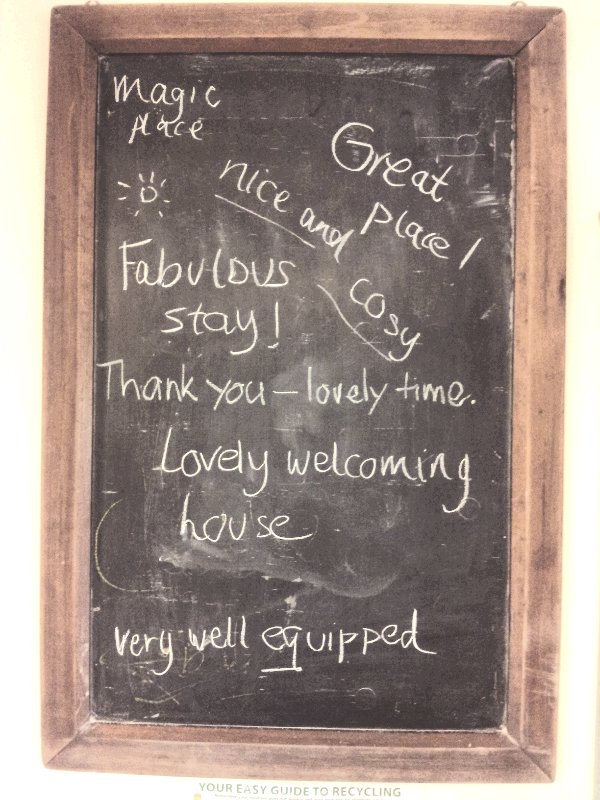 Magic
place
Great
place!
nice and
cosy
Fabulous
stay!
Thank you – lovely time.
Lovely welcoming
house
very well equipped
YOUR EASY GUIDE TO RECYCLING